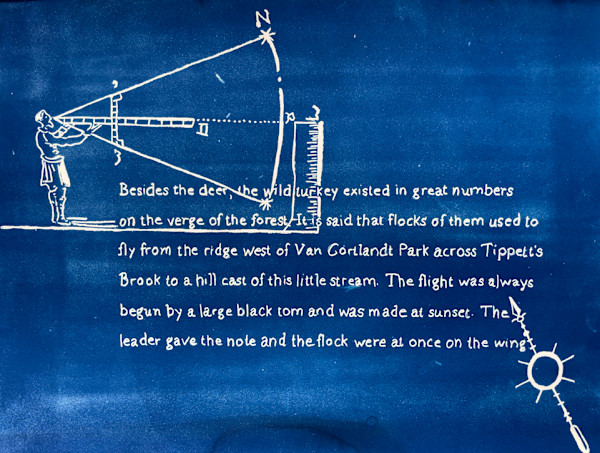 N
Besides the deer, the wild turkey existed in great numbers
on the verge of the forest. It is said that flocks of them used to
fly from the ridge west of Van Cortlandt Park across Tippett's
Brook to a hill cast of this little stream. The flight was always
begun by a large black tom and was made at sunset. The
leader gave the note and the flock were at once on the wing